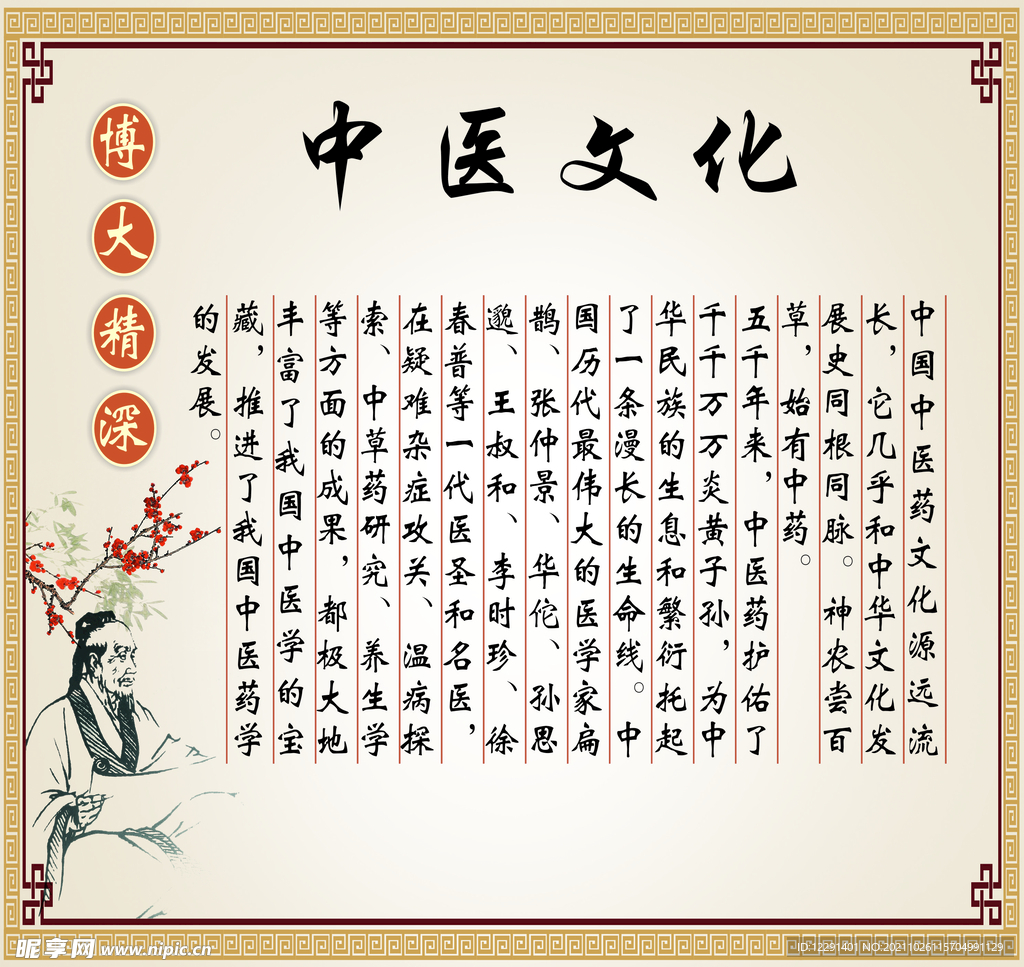 中医文化
博大精深
中国中医药文化源远流
长，它几乎和中华文化发
展史同根同脉。神农尝百
草，始有中药。
五千年来，中医药护佑了
千千万万炎黄子孙，为中
华民族的生息和繁衍托起
了一条漫长的生命线。中
国历代最伟大的医学家扁
鹊、张仲景、华佗、孙思
邈、王叔和、李时珍、徐
春普等一代医圣和名医，
在疑难杂症攻关、温病探
索、中草药研究、养生学
等方面的成果，都极大地
丰富了我国中医学的宝
藏，推进了我国中医药学
的发展。
昵享网 www.nipic.cn
ID:12291401 NO:20211026115704991129